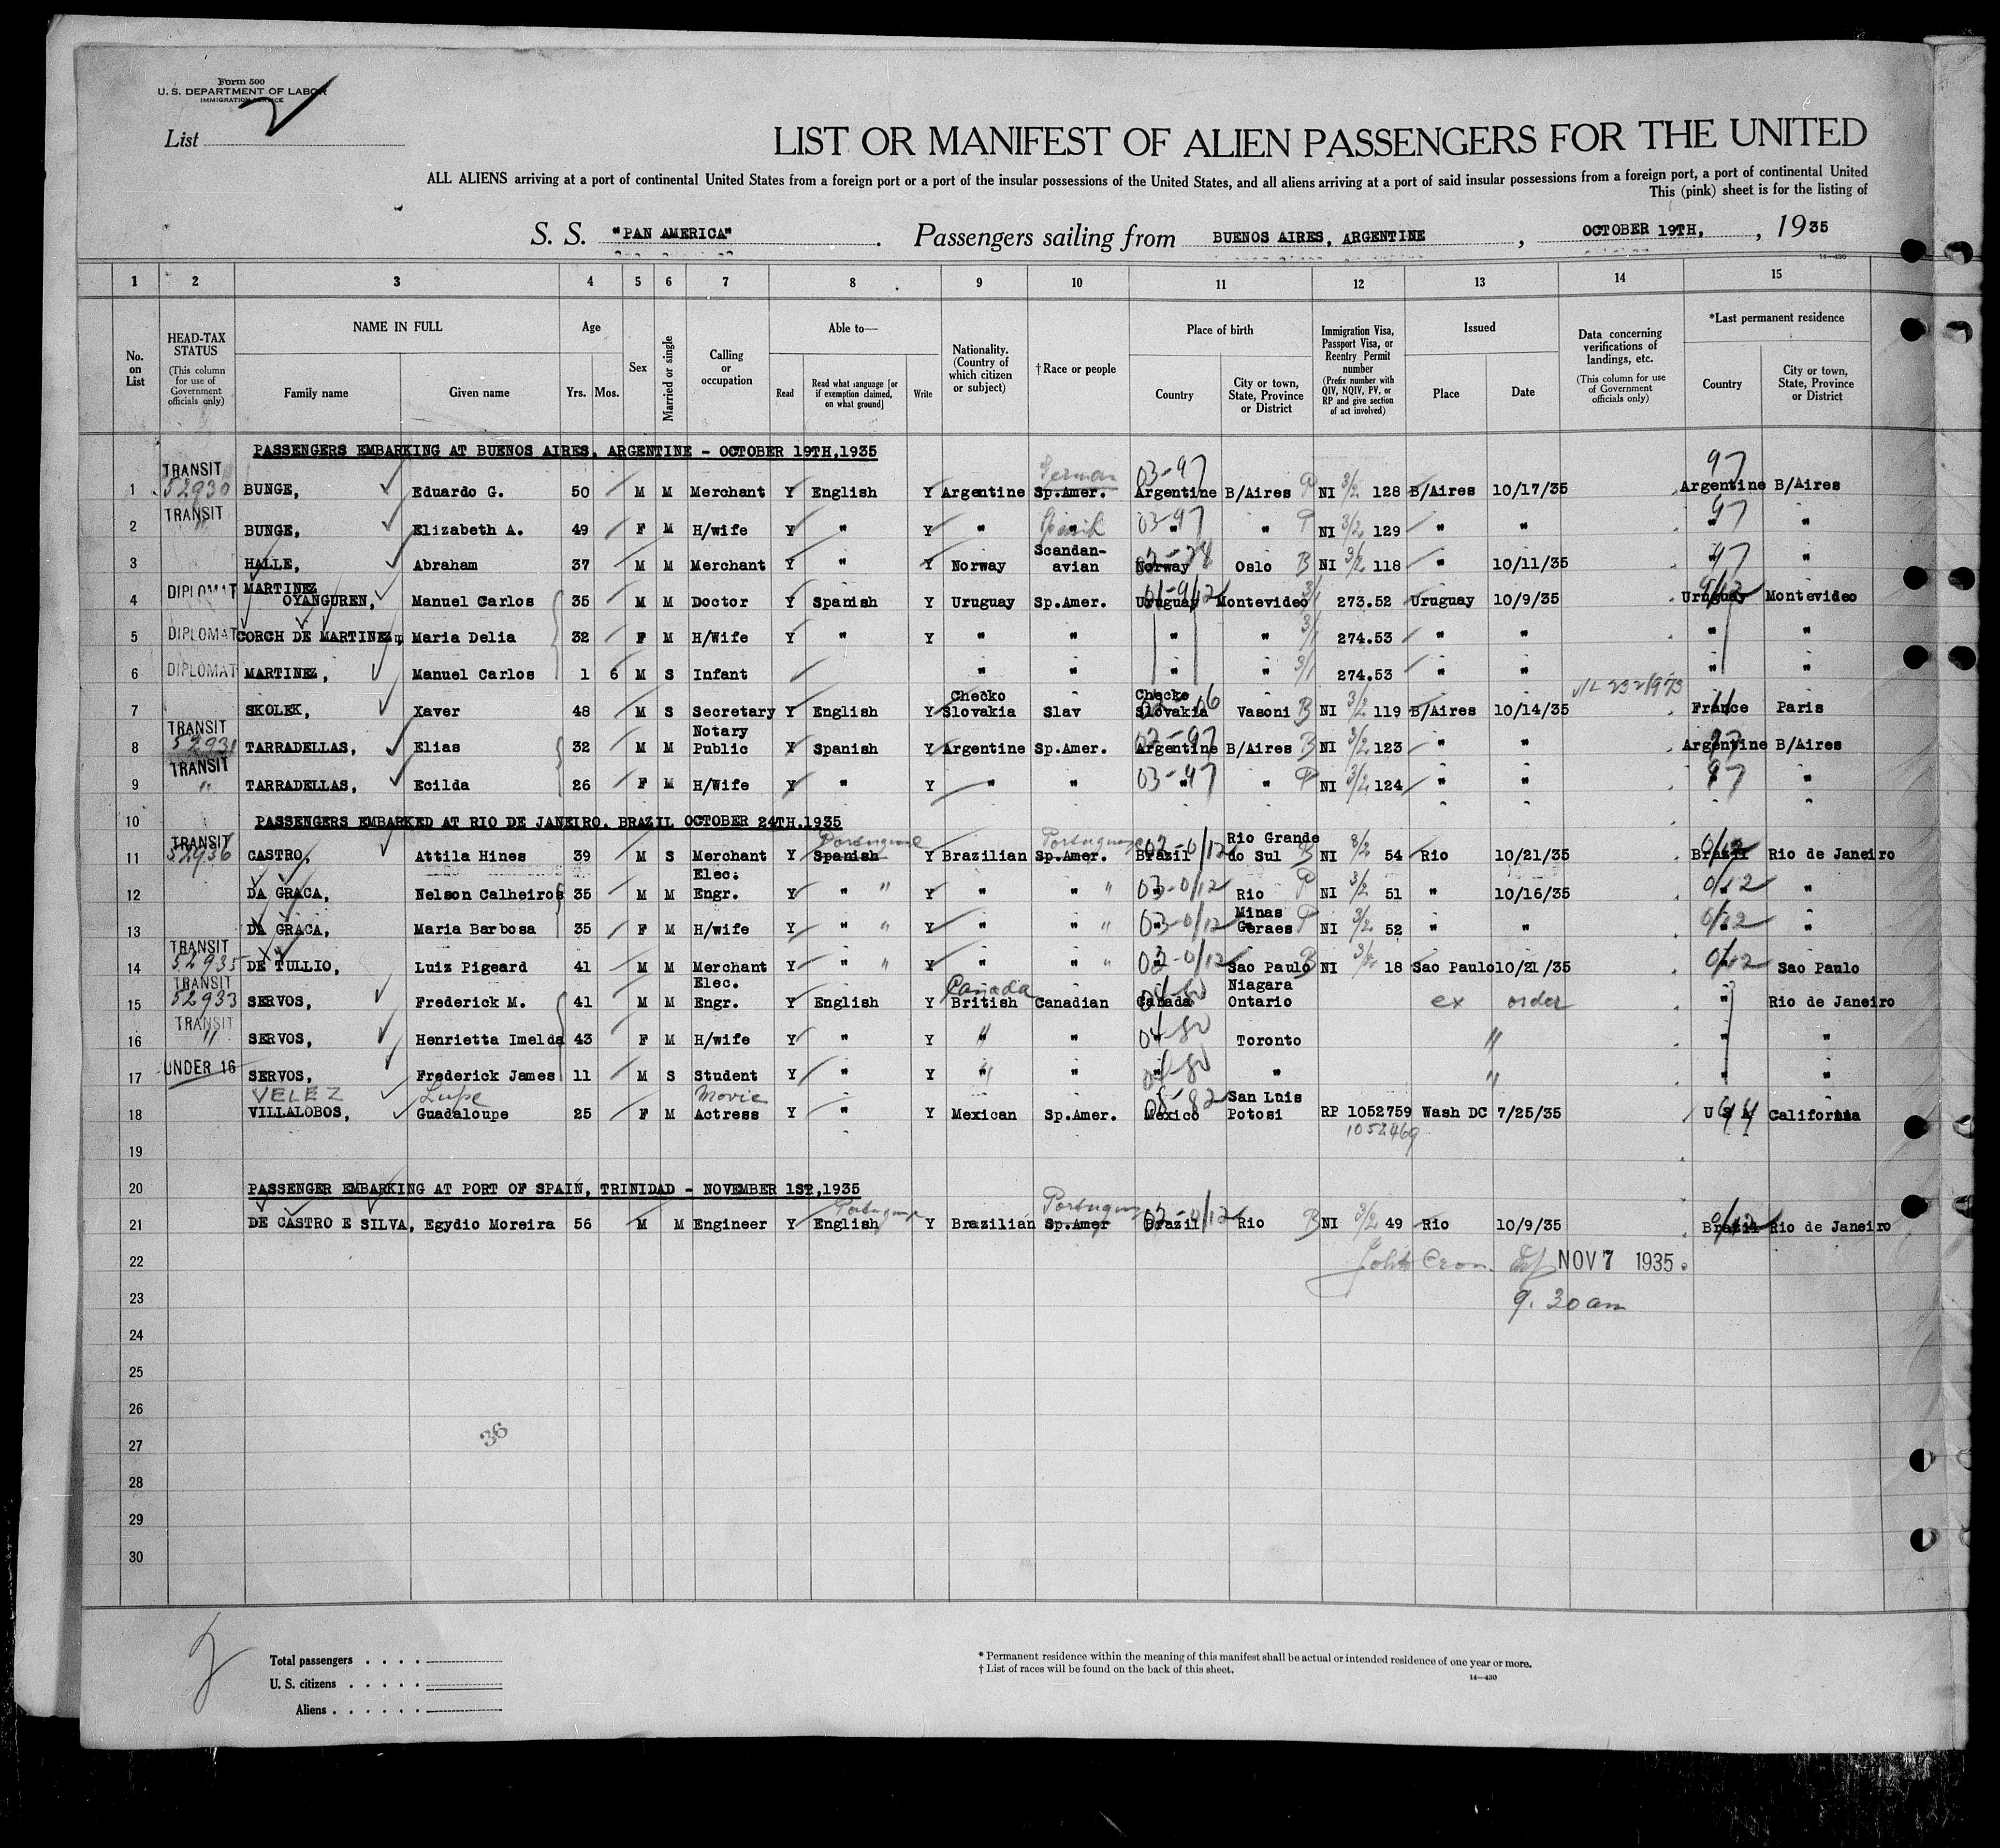 Form 500
U. S. DEPARTMENT OF LABOR
IMMIGRATION SERVICE
List 2
LIST OR MANIFEST OF ALIEN PASSENGERS FOR THE UNITED
ALL ALIENS arriving at a port of continental United States from a foreign port or a port of the insular possessions of the United States, and all aliens arriving at a port of said insular possessions from a foreign port, a port of continental United
This (pink) sheet is for the listing of
S. S. "PAN AMERICA" . Passengers sailing from BUENOS AIRES, ARGENTINE , OCTOBER 19TH, , 1935
14-430
1 2 3 4 5 6 7 8 9 10 11 12 13 14 15
No. on List
HEAD-TAX STATUS (This column for use of Government officials only)
NAME IN FULL
Family name Given name
Age
Yrs. Mos.
Sex
Married or single
Calling or occupation
Able to—
Read Read what language [or if exemption claimed, on what ground] Write
Nationality. (Country of which citizen or subject)
† Race or people
Place of birth
Country City or town, State, Province or District
Immigration Visa, Passport Visa, or Reentry Permit number (Prefix number with QIV, NQIV, PV, or RP and give section of act involved)
Issued
Place Date
Data concerning verifications of landings, etc. (This column for use of Government officials only)
*Last permanent residence
Country City or town, State, Province or District
PASSENGERS EMBARKING AT BUENOS AIRES, ARGENTINE - OCTOBER 19TH,1935
1 TRANSIT 52930 BUNGE, Eduardo G. 50 M M Merchant Y English Y Argentine Sp.Amer. German Argentine 03-97 B/Aires P NI 3/2 128 B/Aires 10/17/35 Argentine 97 B/Aires
2 TRANSIT " BUNGE, Elizabeth A. 49 F M H/wife Y " Y " " " 03-97 " P NI 3/2 129 " " " 97 "
3 HALLE, Abraham 37 M M Merchant Y " Y Norway Scandan-avian Norway Oslo B NI 3/2 118 " 10/11/35 " 97 "
4 DIPLOMAT MARTINEZ OYANGUREN, Manuel Carlos 35 M M Doctor Y Spanish Y Uruguay Sp.Amer. Uruguay Montevideo 3/1 273.52 Uruguay 10/9/35 Uruguay Montevideo
5 DIPLOMAT CORCH DE MARTINEZ, Maria Delia 32 F M H/Wife Y " Y " " " " 3/1 274.53 " " " "
6 DIPLOMAT MARTINEZ, Manuel Carlos 1 6 M S Infant " " " " 3/1 274.53 " " " "
7 SKOLEK, Xaver 48 M S Secretary Y English Y Checko Slovakia Slav Checko Slovakia Vasoni B NI 3/2 119 B/Aires 10/14/35 France Paris
8 TRANSIT 52931 TARRADELLAS, Elias 32 M M Notary Public Y Spanish Y Argentine Sp.Amer. Argentine B/Aires B NI 3/2 123 " " Argentine 97 B/Aires
9 TRANSIT " TARRADELLAS, Ecilda 26 F M H/Wife Y " Y " " " 03-97 " P NI 3/2 124 " " " 97 "
10 PASSENGERS EMBARKED AT RIO DE JANEIRO. BRAZIL OCTOBER 24TH.1935
11 TRANSIT 52936 CASTRO, Attila Hines 39 M S Merchant Y Spanish Portuguese Y Brazilian Sp.Amer. Portuguese Brazil Rio Grande do Sul B NI 3/2 54 Rio 10/21/35 Brazil Rio de Janeiro
12 DA GRACA, Nelson Calheiros 35 M M Elec. Engr. Y " " Y " " " " 03-0/12 Rio P NI 3/2 51 " 10/16/35 0/12 " "
13 DA GRACA, Maria Barbosa 35 F M H/wife Y " " Y " " " " 03-0/12 Minas Geraes P NI 3/2 52 " " 0/12 " "
14 TRANSIT 52935 DE TULLIO, Luiz Pigeard 41 M M Merchant Y " " Y " " " " Sao Paulo B NI 3/2 18 Sao Paulo 10/21/35 0/12 " Sao Paulo
15 TRANSIT 52933 SERVOS, Frederick M. 41 M M Elec. Engr. Y English Y British Canada Canadian Canada Niagara Ontario ex order " Rio de Janeiro
16 TRANSIT " SERVOS, Henrietta Imelda 43 F M H/wife Y " Y " " 04-80 Toronto " " "
17 UNDER 16 SERVOS, Frederick James 11 M S Student Y " Y " " " " " " "
18 VELEZ VILLALOBOS, Lupe Guadaloupe 25 F M Movie Actress Y " Y Mexican Sp.Amer. Mexico San Luis Potosi RP 1052759 1052469 Wash DC 7/25/35 U S A California
19
20 PASSENGER EMBARKING AT PORT OF SPAIN, TRINIDAD - NOVEMBER 1ST,1935
21 DE CASTRO E SILVA, Egydio Moreira 56 M M Engineer Y English Portuguese Y Brazilian Sp.Amer Portuguese Brazil Rio B NI 3/2 49 Rio 10/9/35 Brazil Rio de Janeiro
22 NOV 7 1935
23 9.30am
24
25
26
27
28
29
30
36
2
Total passengers
U. S. citizens
Aliens
* Permanent residence within the meaning of this manifest shall be actual or intended residence of one year or more.
† List of races will be found on the back of this sheet.
14-430